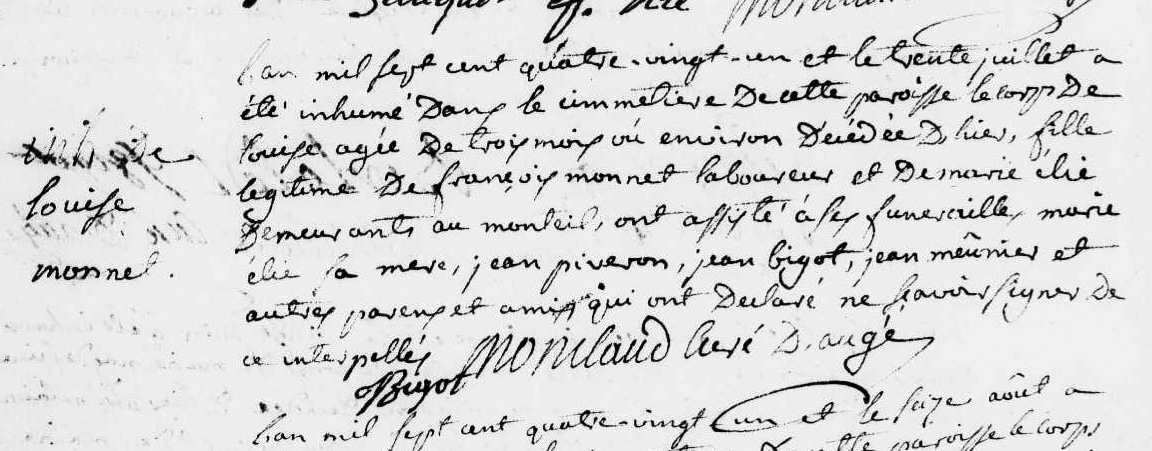 inh. de
louise
monnet.
lan mil sept cent quatre-vingt-un et le trente juillet a
été inhumé Dans le cimmetiere De cette paroisse le corps De
louise agée De trois mois ou environ Décédée D'hier, fille
legitime De françois monnet laboureur et De marie élie
Demeurants au monteil, ont assisté à ses funerailles marie
élie sa mere, jean piveron, jean bigot, jean meûnier et
autres parens et amis qui ont Declaré ne scavoir signer De
ce interpellés Monilaud Curé D'augé
Bigot
lan mil sept cent quatre-vingt un et le seize aôut a
De cette paroisse le corps